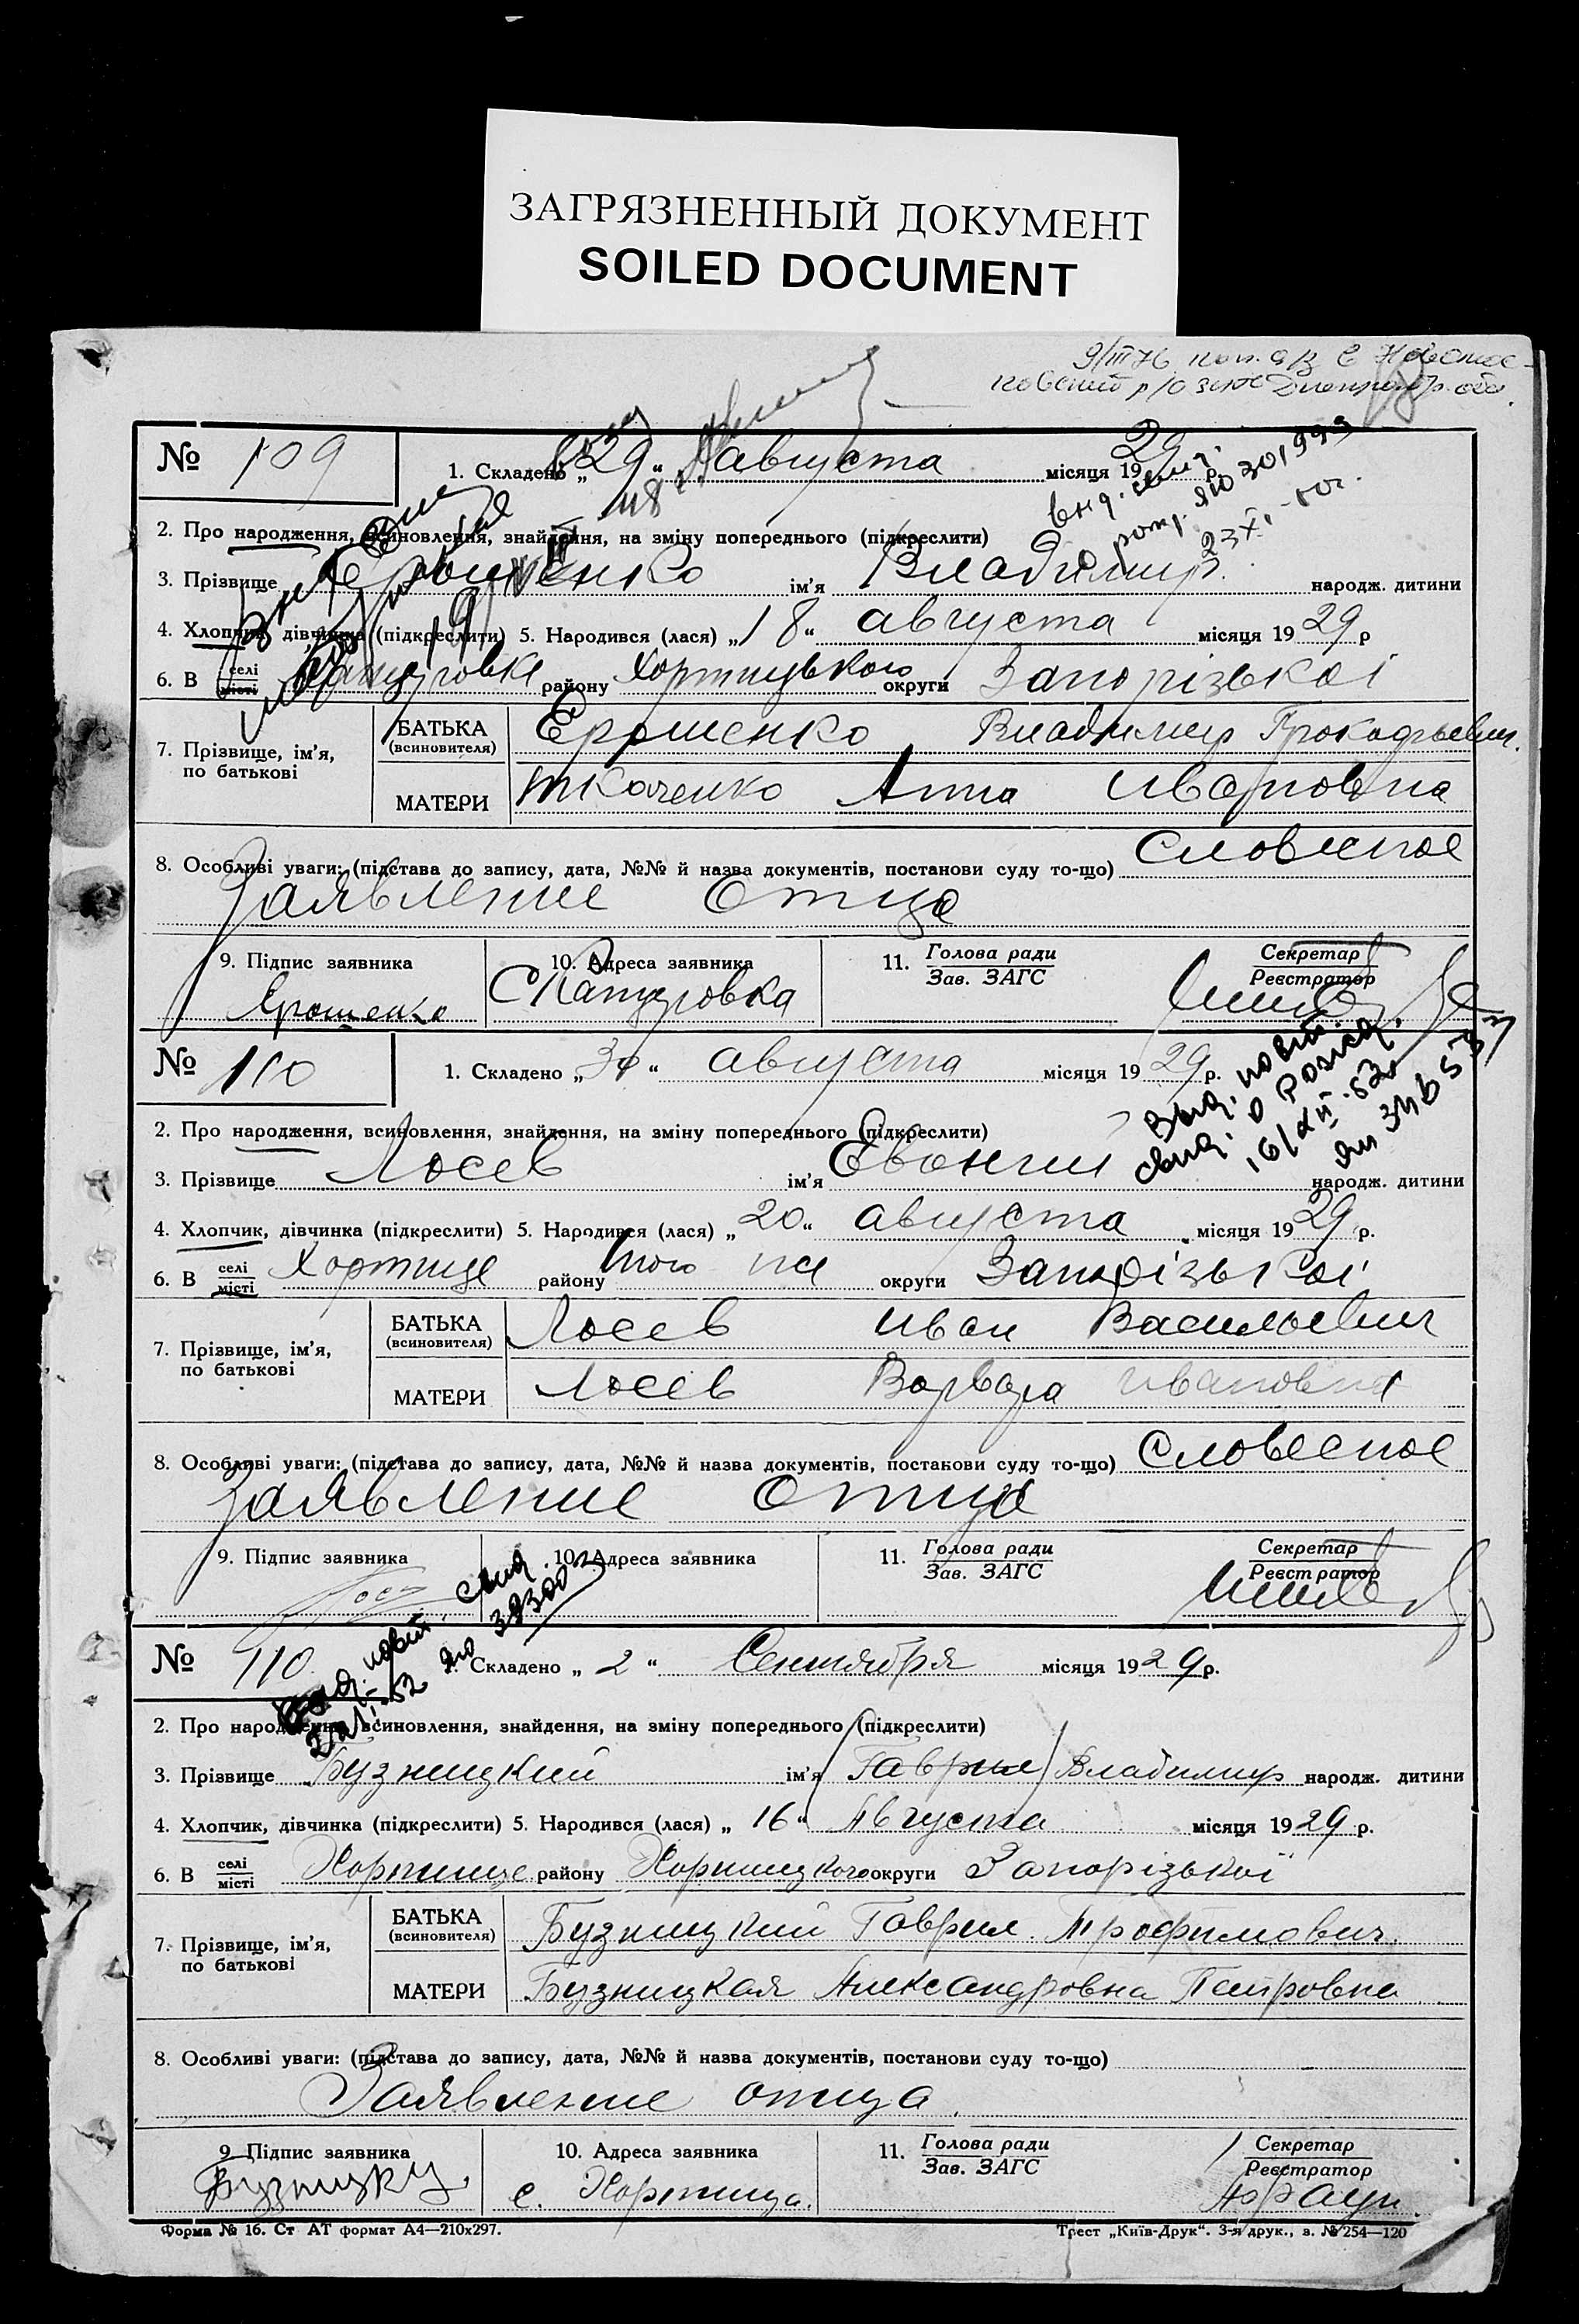 ЗАГРЯЗНЕННЫЙ ДОКУМЕНТ
SOILED DOCUMENT
№ 109
1. Складено „29“ августа місяця 1929 р.
2. Про народження, всиновлення, знайдення, на зміну попереднього (підкреслити)
3. Прізвище Ерошенко ім'я Владимир народж. дитини
4. Хлопчик, дівчинка (підкреслити) 5. Народився (лася) „18“ августа місяця 1929 р
6. В селі місті району Хортицького округи Запорізькоі
7. Прізвище, ім'я, по батькові
БАТЬКА (всиновителя) Ерошенко Владимир Прокофьевич
МАТЕРИ Ткаченко Анна Ивановна
8. Особливі уваги: (підстава до запису, дата, №№ й назва документів, постанови суду то-що) Словесное
Заявление Отца
9. Підпис заявника 10. Адреса заявника 11. Голова ради Зав. ЗАГС Секретар Реєстратор
Ярошенко
вид. свид.
ЯЮ 301999
№ 110
1. Складено „30“ августа місяця 1929 р.
2. Про народження, всиновлення, знайдення, на зміну попереднього (підкреслити)
3. Прізвище Лосев ім'я народж. дитини
4. Хлопчик, дівчинка (підкреслити) 5. Народився (лася) „20“ августа місяця 1929 р.
6. В селі місті Хортице району того же округи Запорізькоі
7. Прізвище, ім'я, по батькові
БАТЬКА (всиновителя) Лосев Иван Васильевич
МАТЕРИ Лосев Варвара Ивановна
8. Особливі уваги: (підстава до запису, дата, №№ й назва документів, постанови суду то-що) Словесное
Заявление Отца
9. Підпис заявника 10. Адреса заявника 11. Голова ради Зав. ЗАГС Секретар Реєстратор
№ 110
1. Складено „2“ Сентября місяця 1929 р.
2. Про народження, всиновлення, знайдення, на зміну попереднього (підкреслити)
3. Прізвище Бузницкий ім'я (Гаврил) Владимир народж. дитини
4. Хлопчик, дівчинка (підкреслити) 5. Народився (лася) „16“ Августа місяця 1929 р.
6. В селі місті Хортице району Хортицкого округи Запорізької
7. Прізвище, ім'я, по батькові
БАТЬКА (всиновителя) Бузницкий Гаврил Трофимович
МАТЕРИ Бузницкая Александровна Петровна
8. Особливі уваги: (підстава до запису, дата, №№ й назва документів, постанови суду то-що)
Заявление отца
9. Підпис заявника 10. Адреса заявника 11. Голова ради Зав. ЗАГС Секретар Реєстратор
с. Хортица.
Форма № 16. Ст АТ формат А4—210х297.
Трест „Київ-Друк“. 3-я друк., з. № 254—120